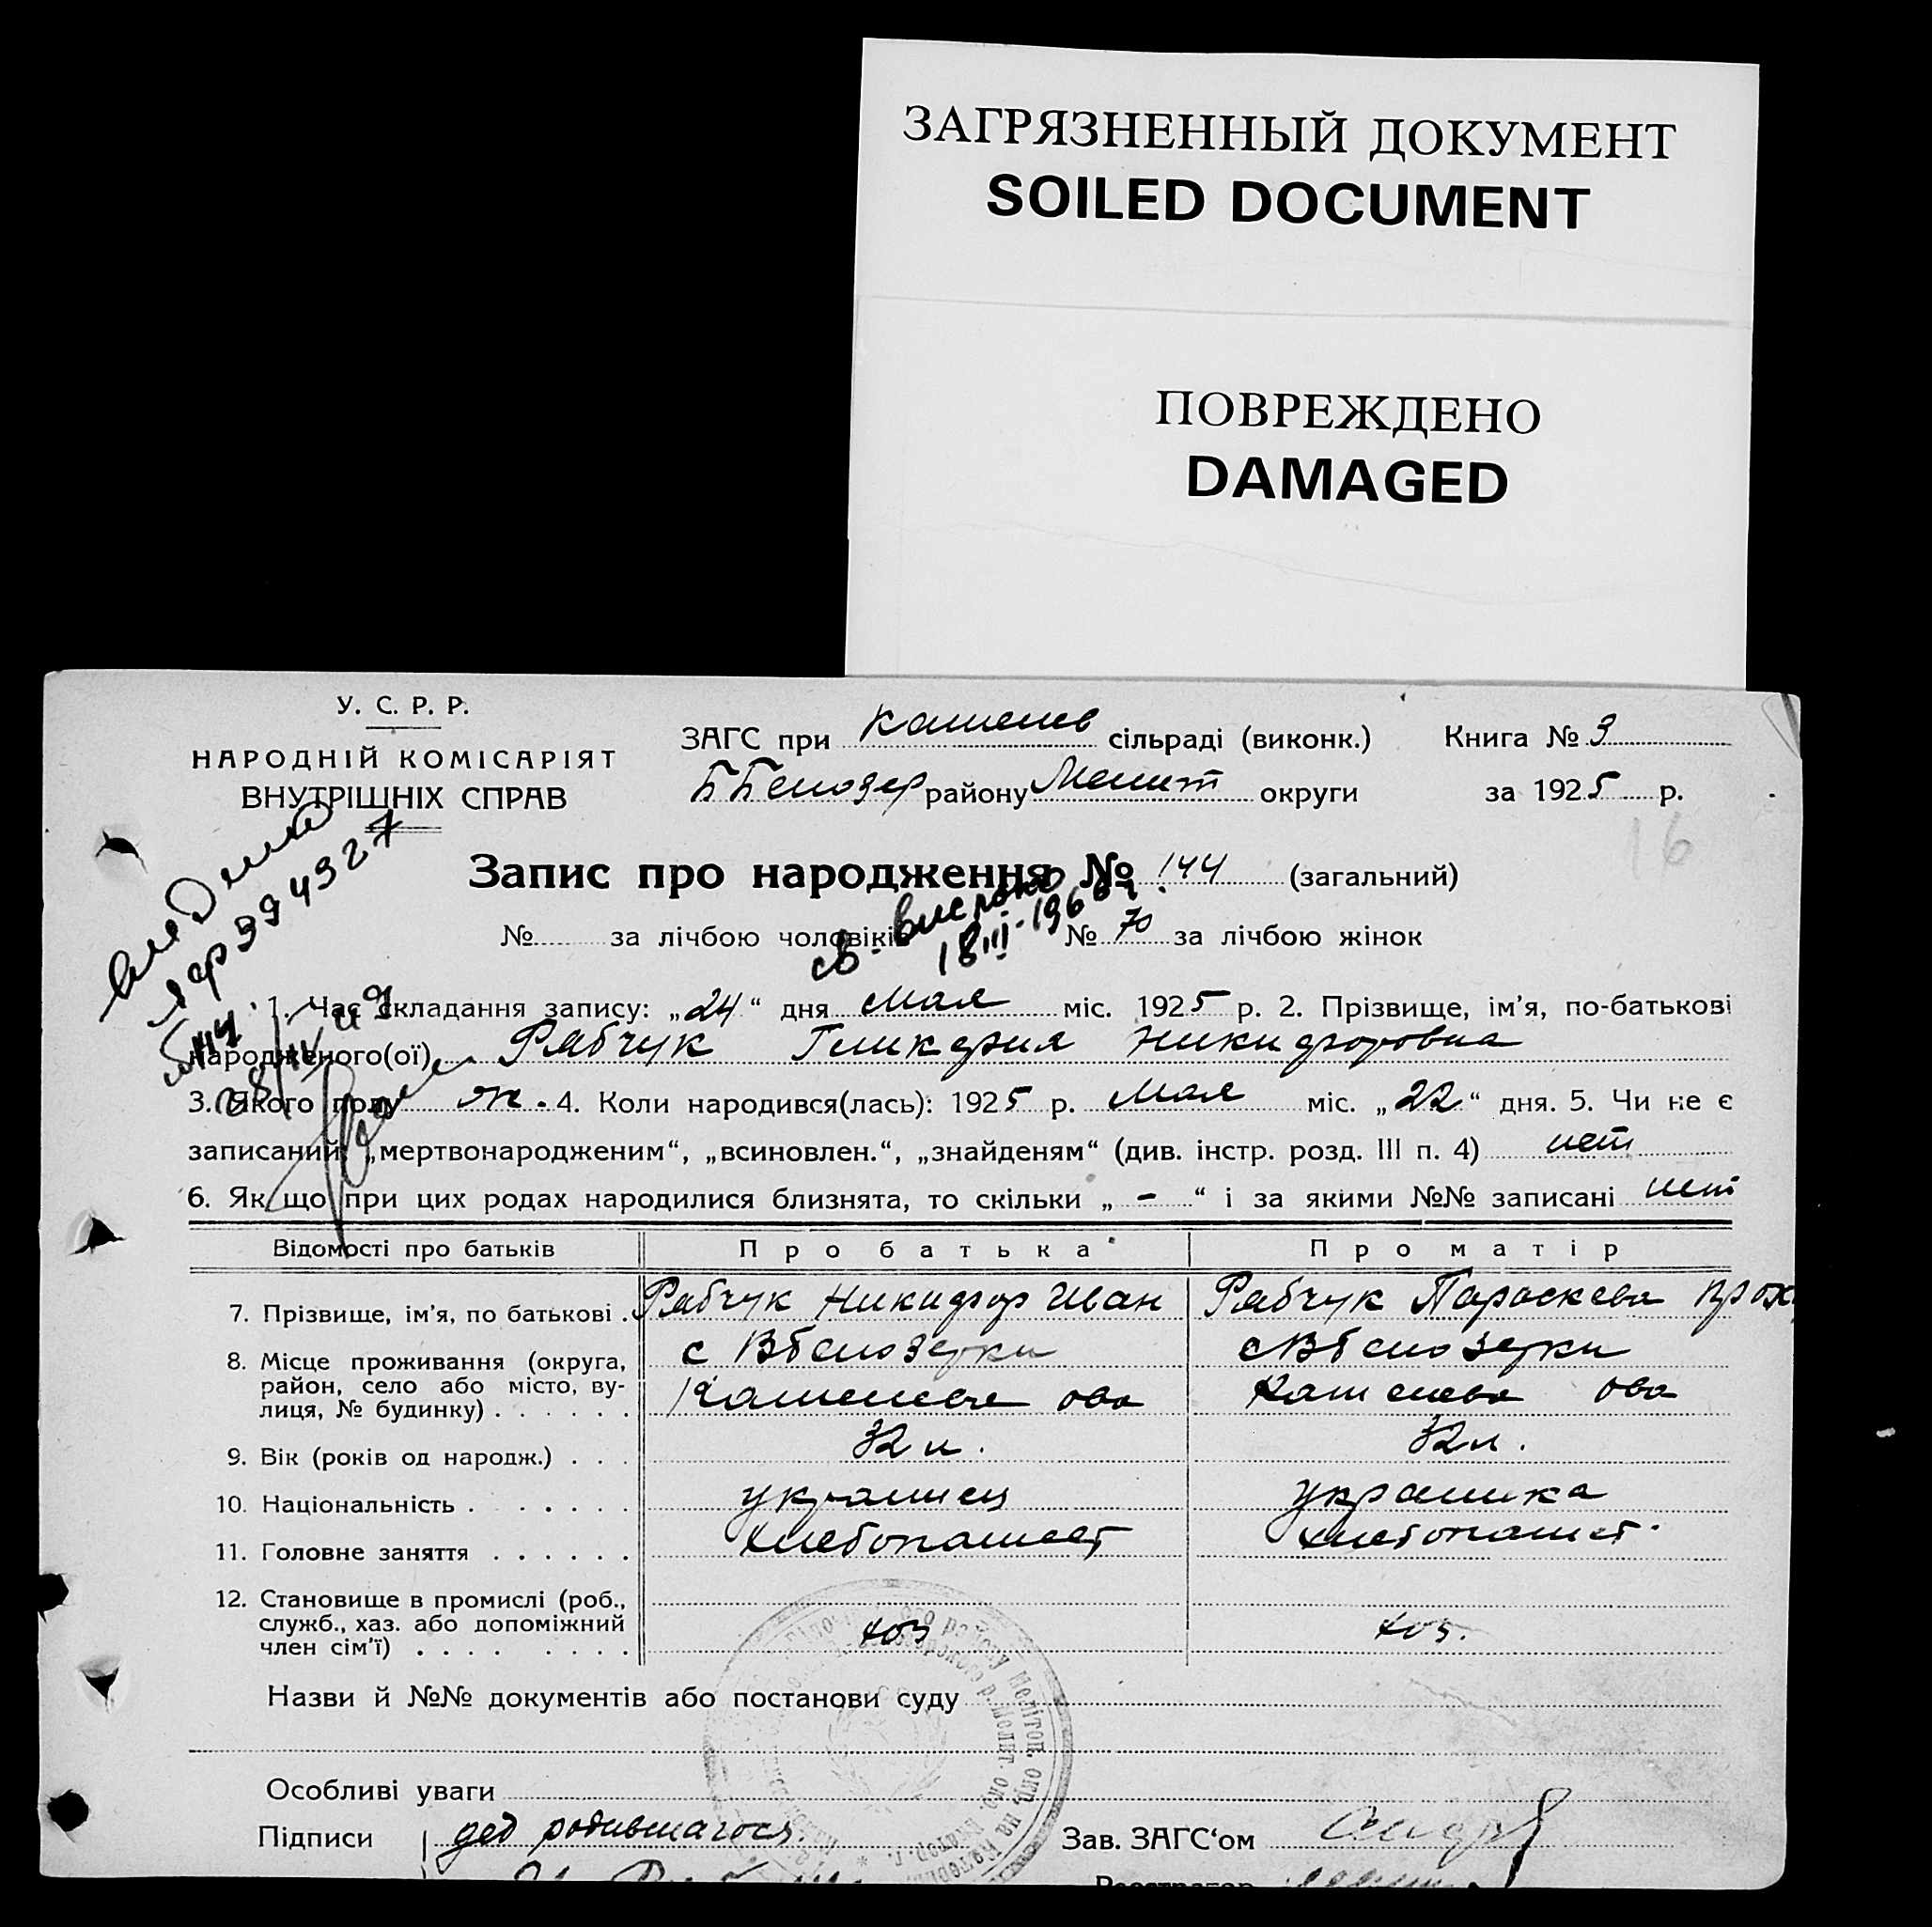 ЗАГРЯЗНЕННЫЙ ДОКУМЕНТ
SOILED DOCUMENT
ПОВРЕЖДЕНО
DAMAGED
У. С. Р. Р.
НАРОДНІЙ КОМІСАРІЯТ
ВНУТРІШНІХ СПРАВ
ЗАГС при сільраді (виконк.) Книга № 3
району Мелит округи за 1925 р.
16
Запис про народження № 144 (загальний)
№ за лічбою чоловіків № 70 за лічбою жінок
18 III-1966 г.
1. Час складання запису: „24“ дня мая міс. 1925 р. 2. Прізвище, ім'я, по-батькові
народженого(ої) Рябчук Гликерия Никифоровна
3. Якого полу ж. 4. Коли народився(лась): 1925 р. мая міс. „22“ дня. 5. Чи не є
записаний: „мертвонародженим“, „всиновлен.“, „знайденям“ (див. інстр. розд. III п. 4) нет
6. Як що при цих родах народилися близнята, то скільки „ - “ і за якими №№ записані нет
Відомості про батьків Про батька Про матір
7. Прізвище, ім'я, по батькові . Рябчук Никифор Иван Рябчук Параскева
8. Місце проживання (округа, с Вбелозерки с Вбелозерки
район, село або місто, ву-
лиця, № будинку) . . . . . .
9. Вік (років од народж.) . . . 32 л. 32 л.
10. Національність . . . . . . украинец украинка
11. Головне заняття . . . . . . хлебопашест хлебопашест.
12. Становище в промислі (роб.,
служб., хаз. або допоміжний
член сім'ї) . . . . . . . . хоз хоз.
Назви й №№ документів або постанови суду
Особливі уваги
Підписи дед родившагося. Зав. ЗАГС‘ом
Реєстратор